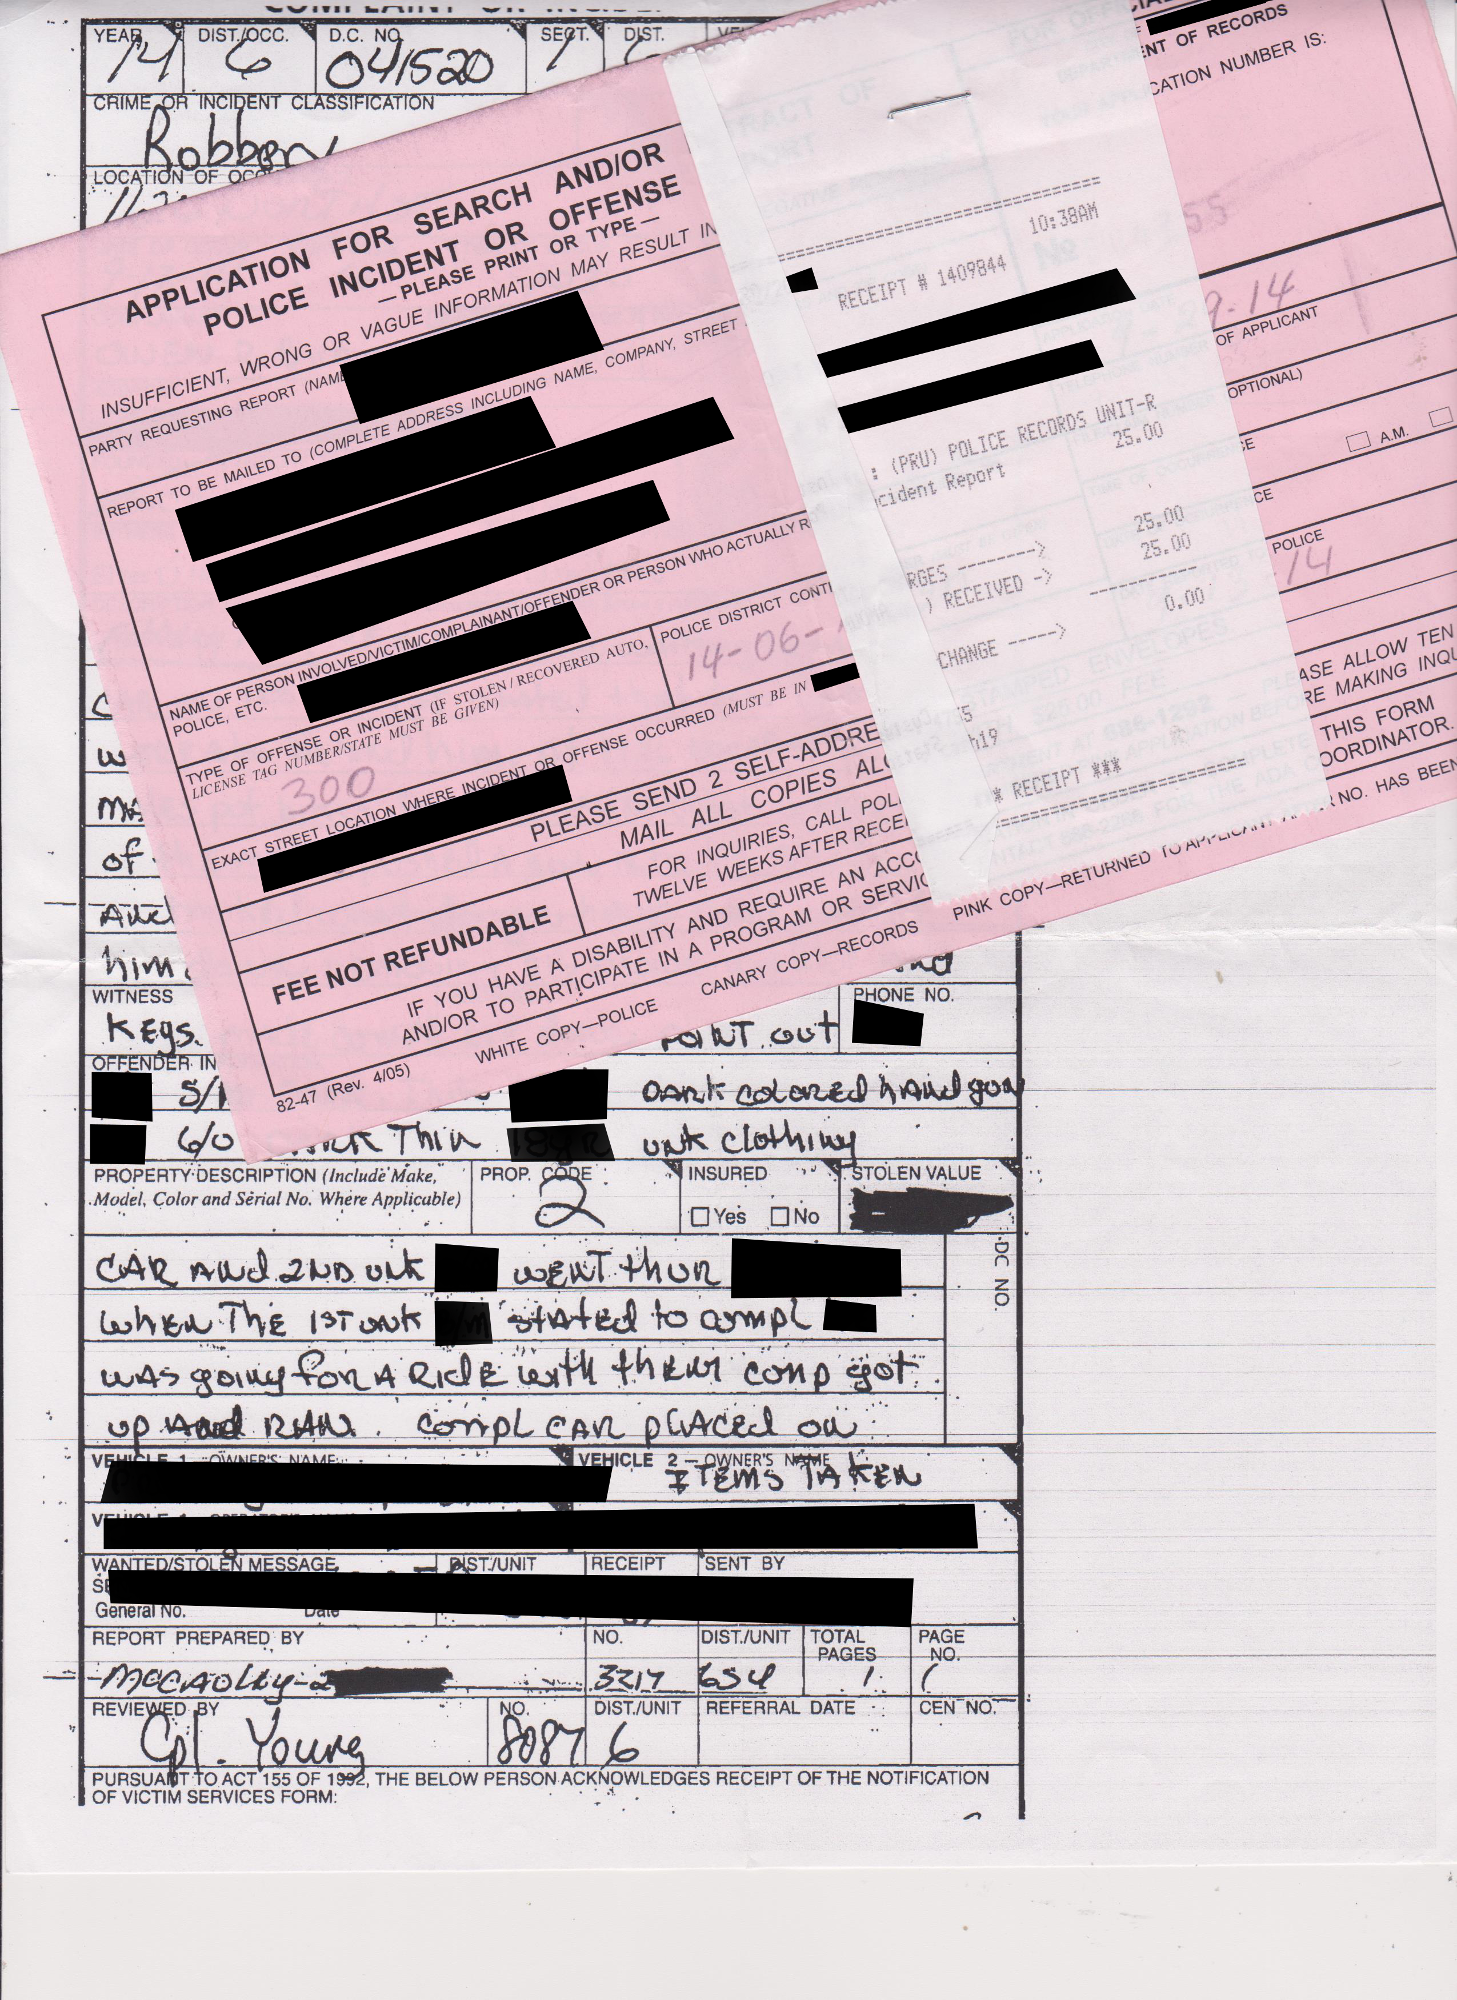 YEAR DIST./OCC. D.C. NO. SECT. DIST.
14 6 041520 1
CRIME OR INCIDENT CLASSIFICATION
Robbery
LOCATION OF
APPLICATION FOR SEARCH AND/OR
POLICE INCIDENT OR OFFENSE
— PLEASE PRINT OR TYPE —
INSUFFICIENT, WRONG OR VAGUE INFORMATION MAY RESULT IN
PARTY REQUESTING REPORT (NAME
REPORT TO BE MAILED TO (COMPLETE ADDRESS INCLUDING NAME, COMPANY, STREET
NAME OF PERSON INVOLVED/VICTIM/COMPLAINANT/OFFENDER OR PERSON WHO ACTUALLY
POLICE, ETC.
TYPE OF OFFENSE OR INCIDENT (IF STOLEN / RECOVERED AUTO,
LICENSE TAG NUMBER/STATE MUST BE GIVEN)
300
POLICE DISTRICT CONT
14-06-
EXACT STREET LOCATION WHERE INCIDENT OR OFFENSE OCCURRED (MUST BE IN
PLEASE SEND 2 SELF-ADDRE
MAIL ALL COPIES
FOR INQUIRIES, CALL POL
TWELVE WEEKS AFTER RECE
FEE NOT REFUNDABLE
IF YOU HAVE A DISABILITY AND REQUIRE AN ACCO
AND/OR TO PARTICIPATE IN A PROGRAM OR SERVIC
WHITE COPY—POLICE CANARY COPY—RECORDS PINK COPY—RETURNED TO APPLICANT
NO. HAS BEEN
82-47 (Rev. 4/05)
10:38AM
RECEIPT # 1409844
: (PRU) POLICE RECORDS UNIT-R
cident Report 25.00
25.00
RGES --------> 25.00
) RECEIVED ->
0.00
CHANGE ----->
h19
* RECEIPT ***
ENT OF RECORDS
CATION NUMBER IS:
55
9-14
OF APPLICANT
OPTIONAL)
A.M.
POLICE
14
ASE ALLOW TEN
RE MAKING INQU
THIS FORM
OORDINATOR.
of
And
him
WITNESS PHONE NO.
Keys. Point out
OFFENDER IN
DARK colored handgun
6/0 Thin unk clothing
PROPERTY DESCRIPTION (Include Make, PROP. CODE INSURED STOLEN VALUE
Model, Color and Serial No. Where Applicable) 2 Yes No
DC NO.
CAR And 2ND unk went thur
When The 1st unk stated to compl
was going for A Ride with them comp got
up And RAN. compl CAR placed on
VEHICLE 1 OWNER'S NAME VEHICLE 2 — OWNER'S NAME
Items Taken
WANTED/STOLEN MESSAGE DIST./UNIT RECEIPT SENT BY
General No. Date
REPORT PREPARED BY NO. DIST./UNIT TOTAL PAGES PAGE NO.
3217 654 1 1
REVIEWED BY NO. DIST./UNIT REFERRAL DATE CEN NO.
Cpl. Young 8087 6
PURSUANT TO ACT 155 OF 1992, THE BELOW PERSON ACKNOWLEDGES RECEIPT OF THE NOTIFICATION
OF VICTIM SERVICES FORM: